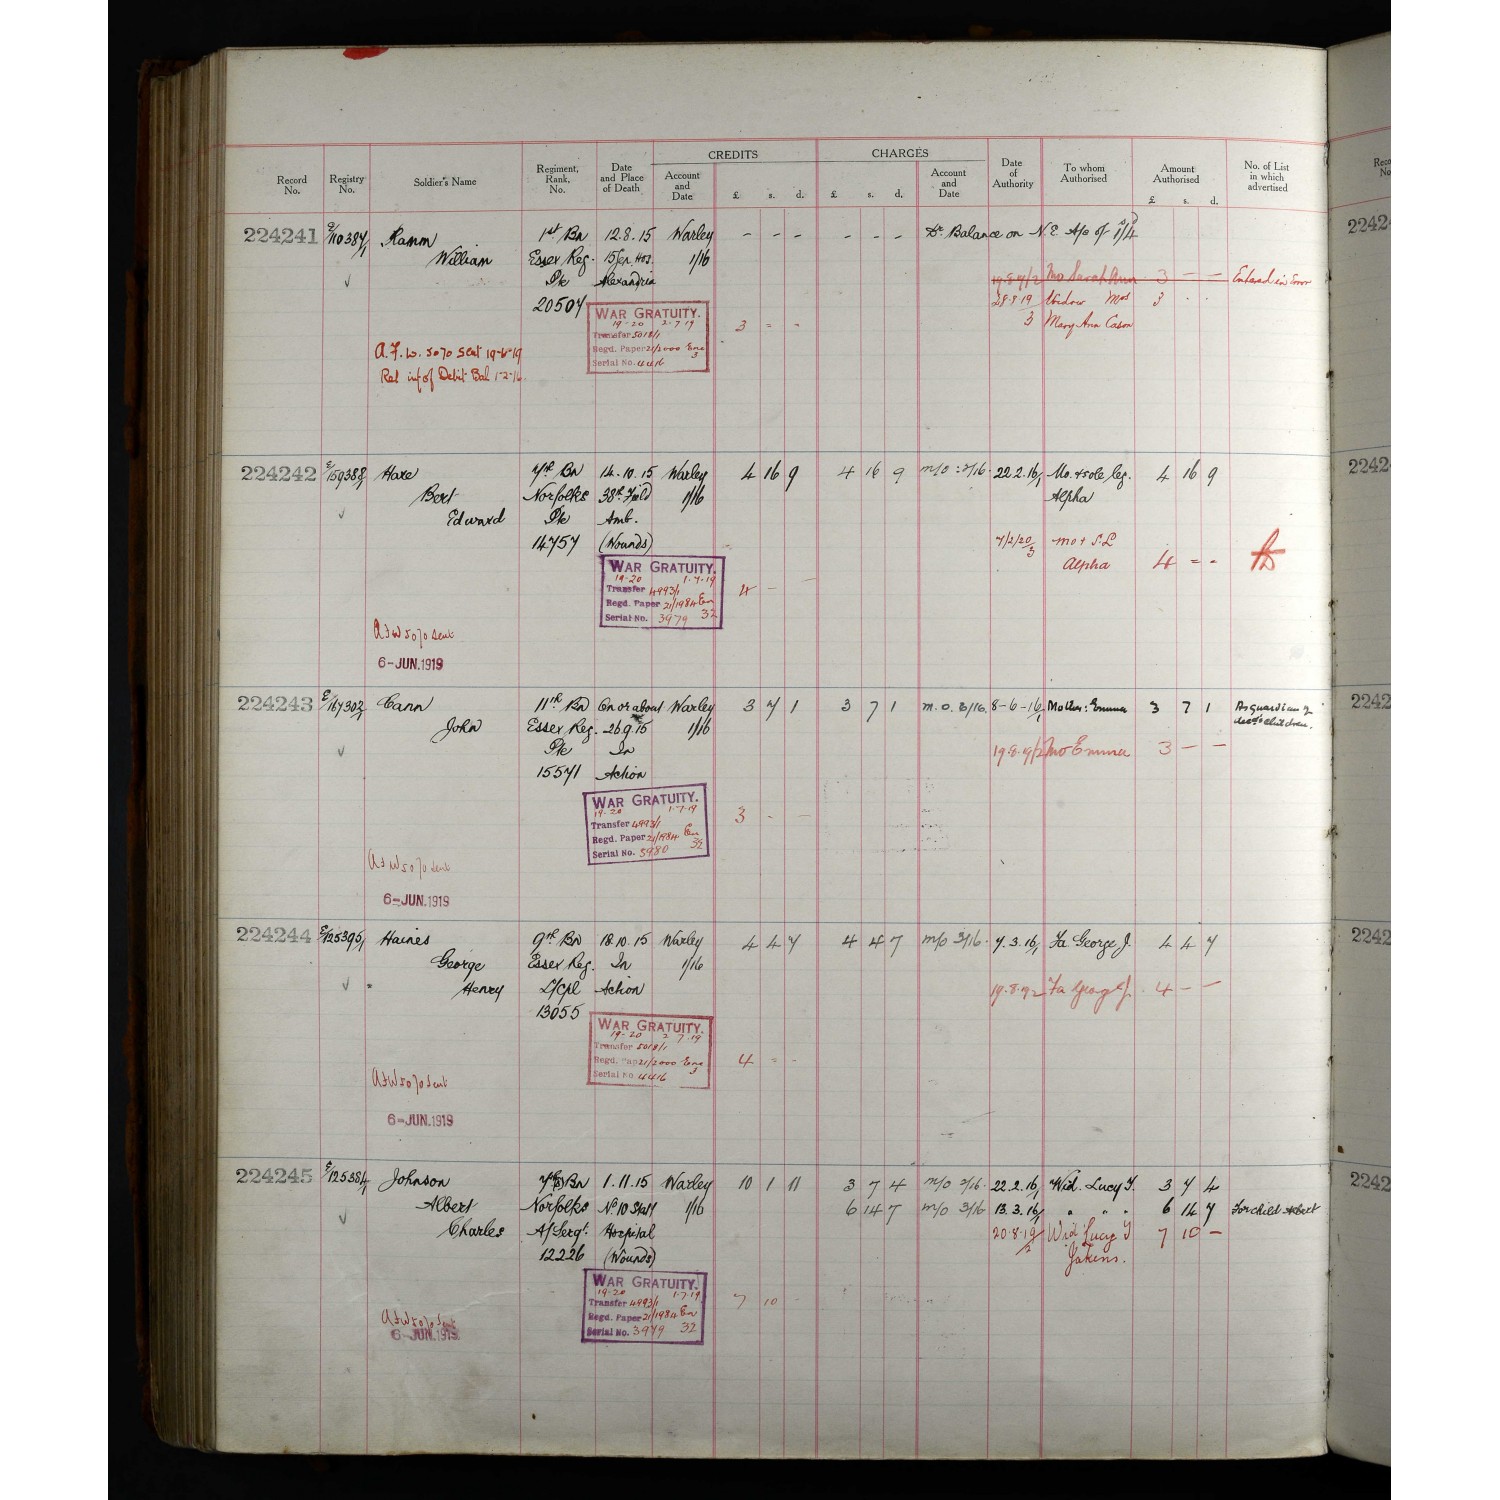 CREDITS CHARGES
Record No. Registry No. Soldier's Name Regiment, Rank, No. Date and Place of Death Account and Date £ s. d. £ s. d. Account and Date Date of Authority To whom Authorised Amount Authorised £ s. d. No. of List in which advertised
224241 E/110384/1 Ramm 1st Bn 12.8.15 Warley - - - - - - Dr Balance on N.E. A/c of
William Essex Reg. 15 Gen. Hos. 1/16
Pte Alexandria 19.8.19/2 Mo Sarah Ann 3 - - Entered in error
20507 28.8.19 Widow Mrs 3 - -
3 Mary Ann Cason
WAR GRATUITY.
19-20 2.7.19 3 = -
Transfer 5018/1
Regd. Paper 21/2000 Ene 3
Serial No. 4416
A.F.W. 5070 sent 19-6-19
Rel inf of Debit Bal 1-2-16
224242 E/159388/1 Hare 7th Bn 14.10.15 Warley 4 16 9 4 16 9 m/o: 2/16. 22.2.16/1 Mo. & sole leg. 4 16 9
Bert Norfolks 38th Field 1/16 Alpha
Edward Pte Amb.
14757 (Wounds) 7/2/20/3 Mo & S.L
Alpha 4 = -
WAR GRATUITY.
19-20 1.7.19
Transfer 4993/1 4 - -
Regd. Paper 21/1984 Ene 32
Serial No. 3979
A F W 5070 sent
6-JUN.1919
224243 E/164302/1 Cann 11th Bn On or about Warley 3 7 1 3 7 1 m.o. 3/16. 8-6-16/1 Mother: Emma 3 7 1 As guardian of
John Essex Reg. 26.9.15 1/16 decd's children.
Pte In 19.8.19/2 Mo Emma 3 - -
15571 Action
WAR GRATUITY.
19-20 1.7.19
Transfer 4993/1 3 - -
Regd. Paper 21/1984 Ene 32
Serial No. 3980
A F W 5070 sent
6-JUN.1919
224244 E/125395/1 Haines 9th Bn 18.10.15 Warley 4 4 7 4 4 7 m/o 3/16. 7.3.16/1 Fa George J. 4 4 7
George Essex Reg. In 1/16
Henry L/Cpl Action 19.8.19/2 Fa George J. 4 - -
13055
WAR GRATUITY.
19-20 2 7.19
Transfer 5018/1
Regd. Pap 21/2000 Ene 3 4 = -
Serial No 4416
A F W 5070 sent
6-JUN.1919
224245 E/125384/1 Johnson 7th (S) Bn 1.11.15 Warley 10 1 11 3 7 4 m/o 2/16. 22.2.16/1 Wid. Lucy J. 3 7 4
Albert Norfolks No 10 Staty 1/16 6 14 7 m/o 3/16 13.3.16/1 " " " 6 14 7 For child Albert
Charles A/Sergt. Hospital 20.8.19/2 Wid Lucy J 7 10 -
12226 (Wounds) Jakens.
WAR GRATUITY.
19-20 1.7.19
Transfer 4993/1 7 10 -
Regd. Paper 21/1984 Ene 32
Serial No. 3979
A F W 5070 Sent
6-JUN.1919